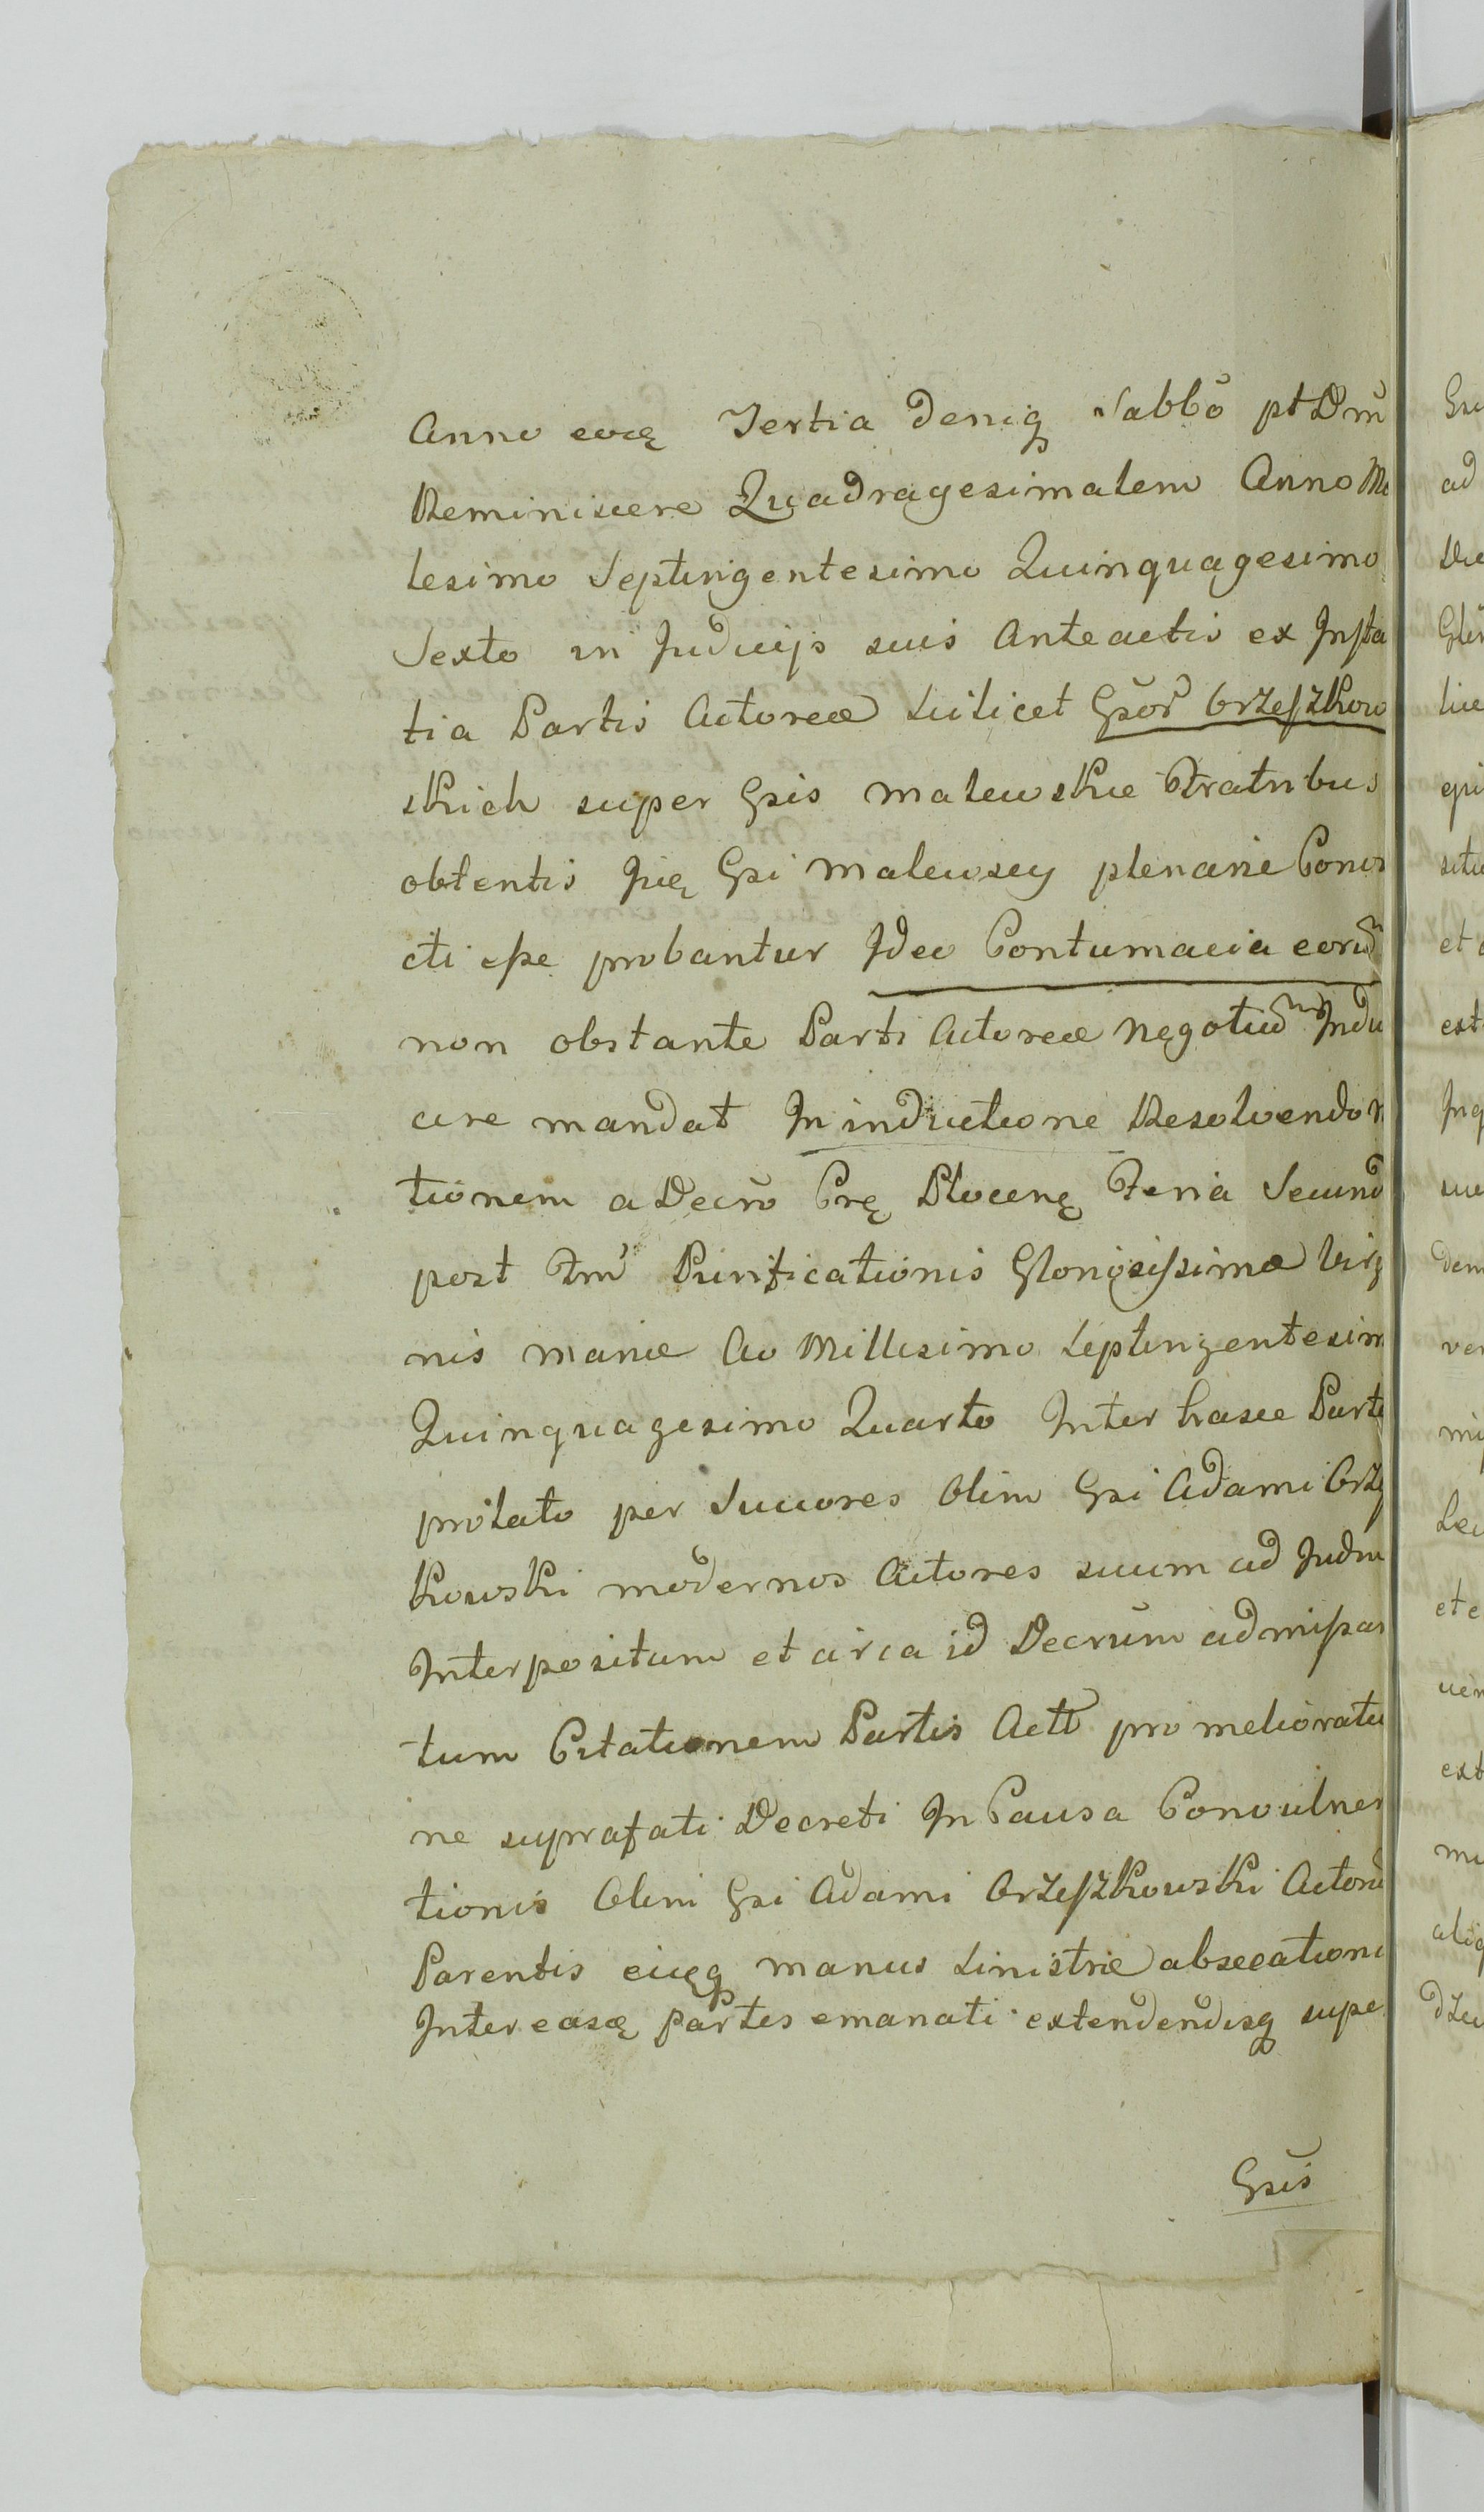 Anno eoę Tertia Deniq Sabbō pt Dm̄
Reminiscere Quadragesimalem Anno Mi
lesimo Septingentesimo Quinquagesimo
Sexto in Judicijs suis Anteactis ex Jnsta
tia Partis Actoreæ Scilicet Gsor̄ Orzeszkow
skich super Gsis Malewskie Fratribus
obtentis Jię Gsi Malewscy plenarie Convi
cti esse probantur Jdeo Contumacia eorū
non obstante Parti Actoreæ Negotiū Jndu
cere mandat Jn inductione Resolvendo
tionem a Decrō Crę Plocenę Feria Secund
post Fm̄ Purificationis Gloriosissimæ Virg
nis Mariæ Ao Millesimo Septingentesim
Quinquagesimo Quarto Jnter hasce Parte
prolato per Succores Olim Gsi Adami Orzes
kowski modernos Actores suum ad Judiu
Jnterpositum et circa id Decrūm admissar
tum Citationem Partis Actt pro melioratu
ne suprafati Decreti Jn Causa Convulner
tionis Olim Gsi Adami Orzeszkowski Actorū
Parentis eiusq manus Sinistræ absecationi
Jnter easę partes emanati extendendisq supe
Gsis
Gsi
ad
et